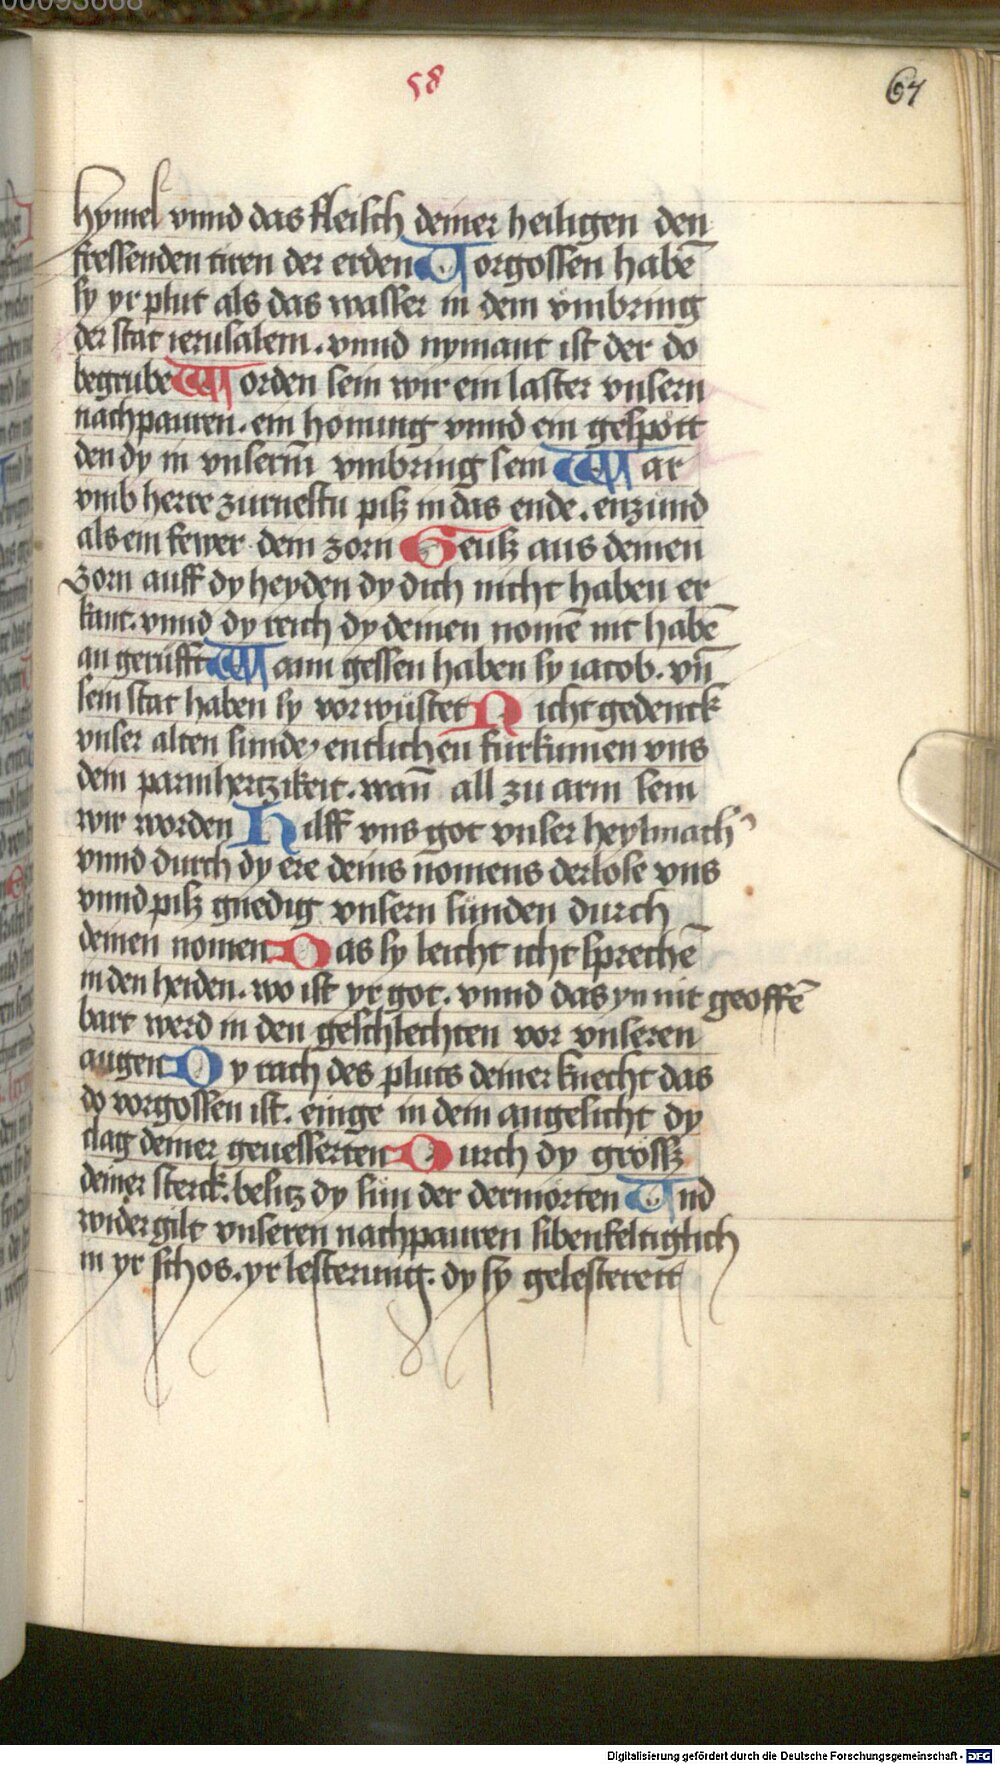 00093668
58
67
hymel vnnd das fleisch deiner heiligen den
fressenden tiren der erden Vorgossen habē
sy yr plut als das wasser in dem vmbring
der stat ierusalem. vnnd nymant ist der do
begrube Worden sein wir ein laster vnsern
nachpauren. ein honung vnnd ein gespött
den dy in vnserm̄ vmbring sein War
vmb herre zurnestu piß in das ende. enzund
als ein fewer dein zorn Geuß aus deinen
zorn auff dy heyden dy dich nicht haben er
kant. vnnd dy reich dy deinen nomē nit habē
an gerüfft Wann gessen haben sy iacob. vn̄
sein stat haben sy vorwüstet Nicht gedenck
vnser alten sunde, entlichen furkumen vns
dein parmhertzikeit. wan̄ all zu arm sein
wir worden Hilff vns got vnser heylmach̕
vnnd durch dy ere deins nomens derlöse vns
vnnd piß gnedig vnsern sünden durch
deinen nomen Das sy leicht icht sprechē
in den heiden. wo ist yr got. vnnd das yn nit geoffē
bart werd in den geschlechten vor vnseren
augen Dy rach des pluts deiner knecht das
do vorgossen ist. einge in dein angesicht dy
clag deiner geuesserten Durch dy grössz
deiner sterck. besitz dy sün der dermörten Vnd
widergilt vnseren nachpauren sibenfeltiglich
in yr schos. yr lesterung. dy sy gelesterett
Digitalisierung gefördert durch die Deutsche Forschungsgemeinschaft - DFG